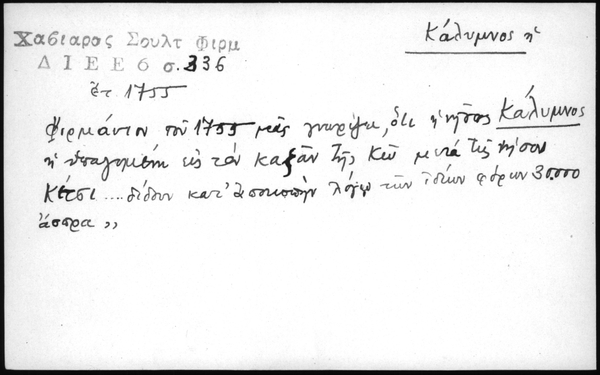 Κάλυμνος ἡ
Χαβιαρας Σουλτ Φιρμ
Δ Ι Ε Ε 6 σ. 336
ἔτ. 1755
Φιρμάνιον τοῦ 1755 μᾶς γνωρίζει, ὅτι ἡ νῆσος Κάλυμνος
ἡ ὑπαγομένη εἰς τὸν καζᾶν τῆς Κῶ μετὰ τῆς νήσου
.... δίδουν κατ' ἀποκοπὴν λόγῳ τῶν ἰδίων φόρων 30.000
ἄσπρα ,,